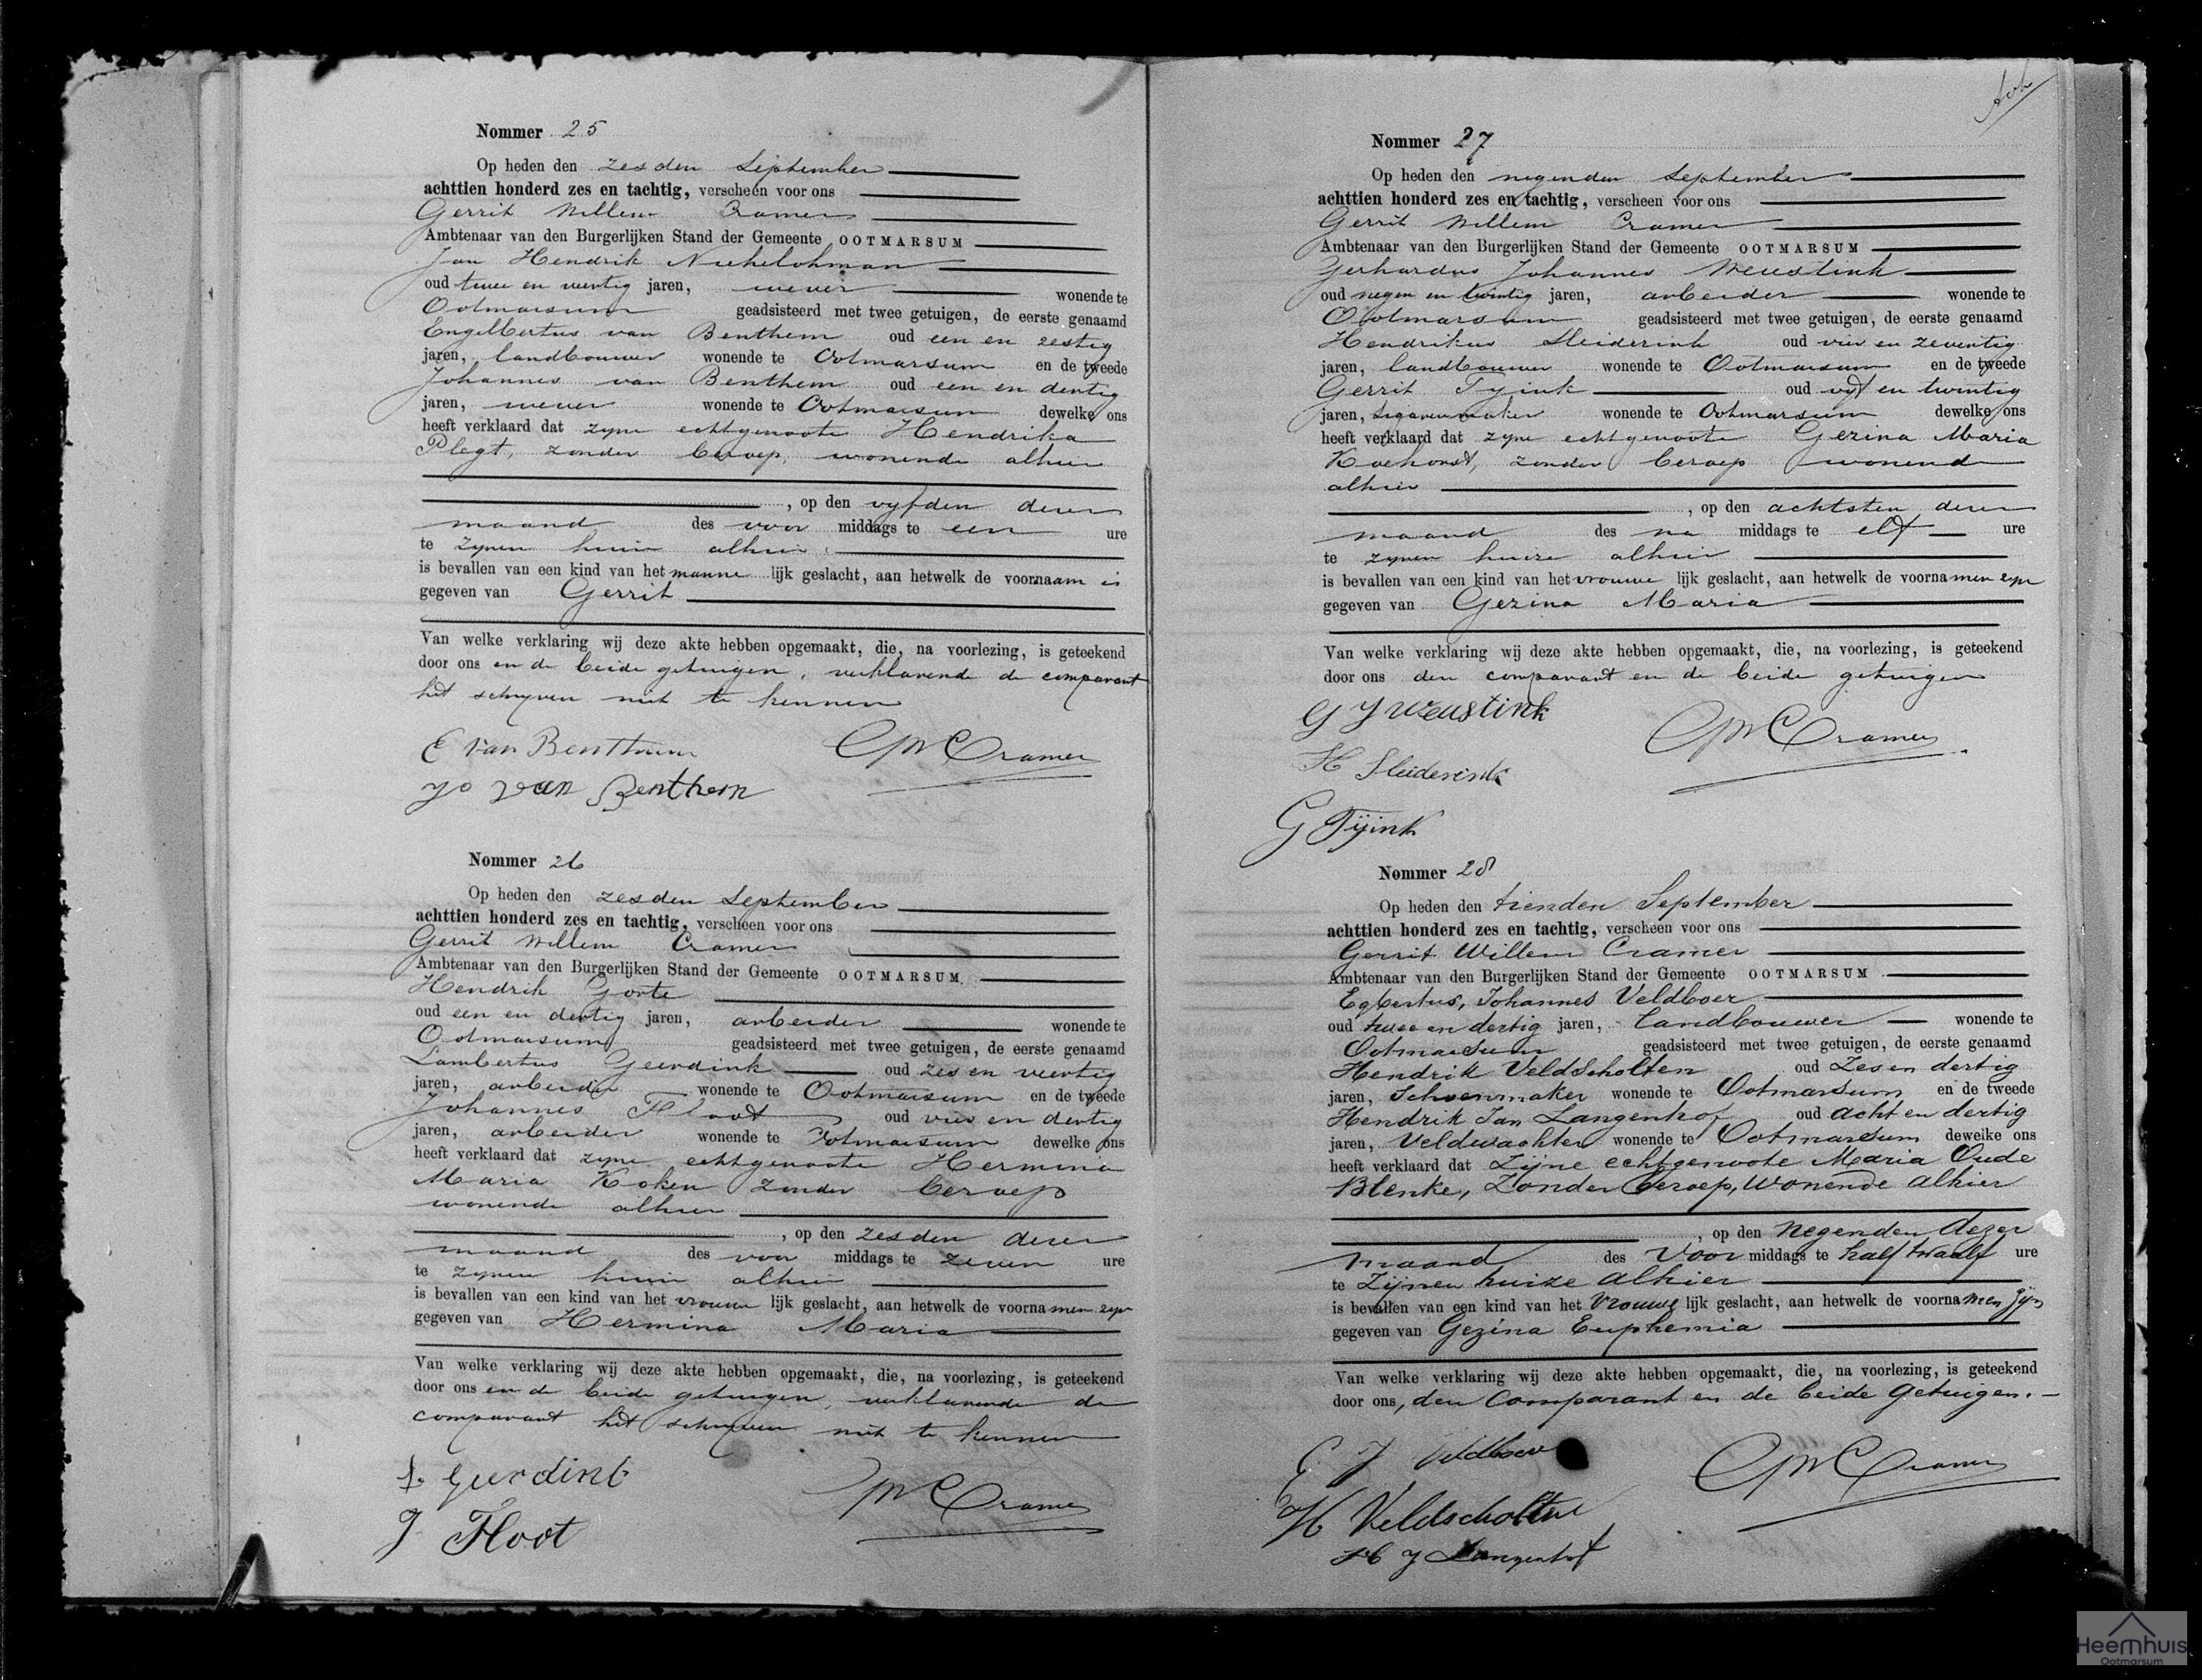 Nommer 25
Op heden den zesden September
achttien honderd zes en tachtig, verscheen voor ons
Gerrit Willem Cramer
Ambtenaar van den Burgerlijken Stand der Gemeente OOTMARSUM
Jan Hendrik
oud twee en veertig jaren, wever wonende te
Ootmarsum geadsisteerd met twee getuigen, de eerste genaamd
Engelbertus van Benthem oud een en zestig
jaren, landbouwer wonende te Ootmarsum en de tweede
Johannes van Benthem oud een en dertig
jaren, wever wonende te Ootmarsum dewelke ons
heeft verklaard dat zyne echtgenoote Hendrika
Plegt, zonder beroep, wonende alhier
, op den vyfden dezer
maand des voor middags te een ure
te zynen huize alhier
is bevallen van een kind van het manne lijk geslacht, aan hetwelk de voornaam is
gegeven van Gerrit
Van welke verklaring wij deze akte hebben opgemaakt, die, na voorlezing, is geteekend
door ons en de beide getuigen, verklarende de comparant
het schryven niet te kennen
E van Benthem GWCramer
Jo van Benthem
Nommer 26
Op heden den zesden September
achttien honderd zes en tachtig, verscheen voor ons
Gerrit Willem Cramer
Ambtenaar van den Burgerlijken Stand der Gemeente OOTMARSUM
Hendrik Gorte
oud een en dertig jaren, arbeider wonende te
Ootmarsum geadsisteerd met twee getuigen, de eerste genaamd
Lambertus Geerdink oud zes en veertig
jaren, arbeider wonende te Ootmarsum en de tweede
Johannes Floot oud vier en dertig
jaren, arbeider wonende te Ootmarsum dewelke ons
heeft verklaard dat zyne echtgenoote Hermina
Maria Koken zonder beroep
wonende alhier
, op den zesden dezer
maand des voor middags te zeven ure
te zynen huize alhier
is bevallen van een kind van het vrouwe lijk geslacht, aan hetwelk de voornamen zyn
gegeven van Hermina Maria
Van welke verklaring wij deze akte hebben opgemaakt, die, na voorlezing, is geteekend
door ons en de beide getuigen, verklarende de
comparant het schryven niet te kennen
L. Geerdink GWCramer
J Floot
Nommer 27
Op heden den negenden September
achttien honderd zes en tachtig, verscheen voor ons
Gerrit Willem Cramer
Ambtenaar van den Burgerlijken Stand der Gemeente OOTMARSUM
Gerhardus Johannes Weustink
oud negen en twintig jaren, arbeider wonende te
Ootmarsum geadsisteerd met twee getuigen, de eerste genaamd
Hendrikus Sleiderink oud vier en zeventig
jaren, landbouwer wonende te Ootmarsum en de tweede
Gerrit Tyink oud vyf en twintig
jaren, sigarenmaker wonende te Ootmarsum dewelke ons
heeft verklaard dat zyne echtgenoote Gezina Maria
Koehorst, zonder beroep wonende
alhier
, op den achtsten dezer
maand des na middags te elf ure
te zynen huize alhier
is bevallen van een kind van het vrouwe lijk geslacht, aan hetwelk de voornamen zyn
gegeven van Gezina Maria
Van welke verklaring wij deze akte hebben opgemaakt, die, na voorlezing, is geteekend
door ons den comparant en de beide getuigen
G J Weustink
GWCramer
H Sleiderink
G Tijink
Nommer 28
Op heden den tienden September
achttien honderd zes en tachtig, verscheen voor ons
Gerrit Willem Cramer
Ambtenaar van den Burgerlijken Stand der Gemeente OOTMARSUM
Egbertus, Johannes Veldboer
oud twee en dertig jaren, landbouwer wonende te
Ootmarsum geadsisteerd met twee getuigen, de eerste genaamd
Hendrik Veldscholten oud Zes en dertig
jaren, Schoenmaker wonende te Ootmarsum en de tweede
Hendrik Jan Langenhof oud acht en dertig
jaren, Veldwachter wonende te Ootmarsum dewelke ons
heeft verklaard dat Zijne echtgenoote Maria Oude
Blenke, Zonder beroep, Wonende alhier
, op den negenden dezer
maand des Voor middags te half twaalf ure
te Zijnen huize alhier
is bevallen van een kind van het Vrouwe lijk geslacht, aan hetwelk de voornamen zyn
gegeven van Gezina Euphemia
Van welke verklaring wij deze akte hebben opgemaakt, die, na voorlezing, is geteekend
door ons, den Comparant en de beide Getuigen.
E J Veldboer
GWCramer
H Veldscholten
H J Langenhof
Heemhuis
Ootmarsum